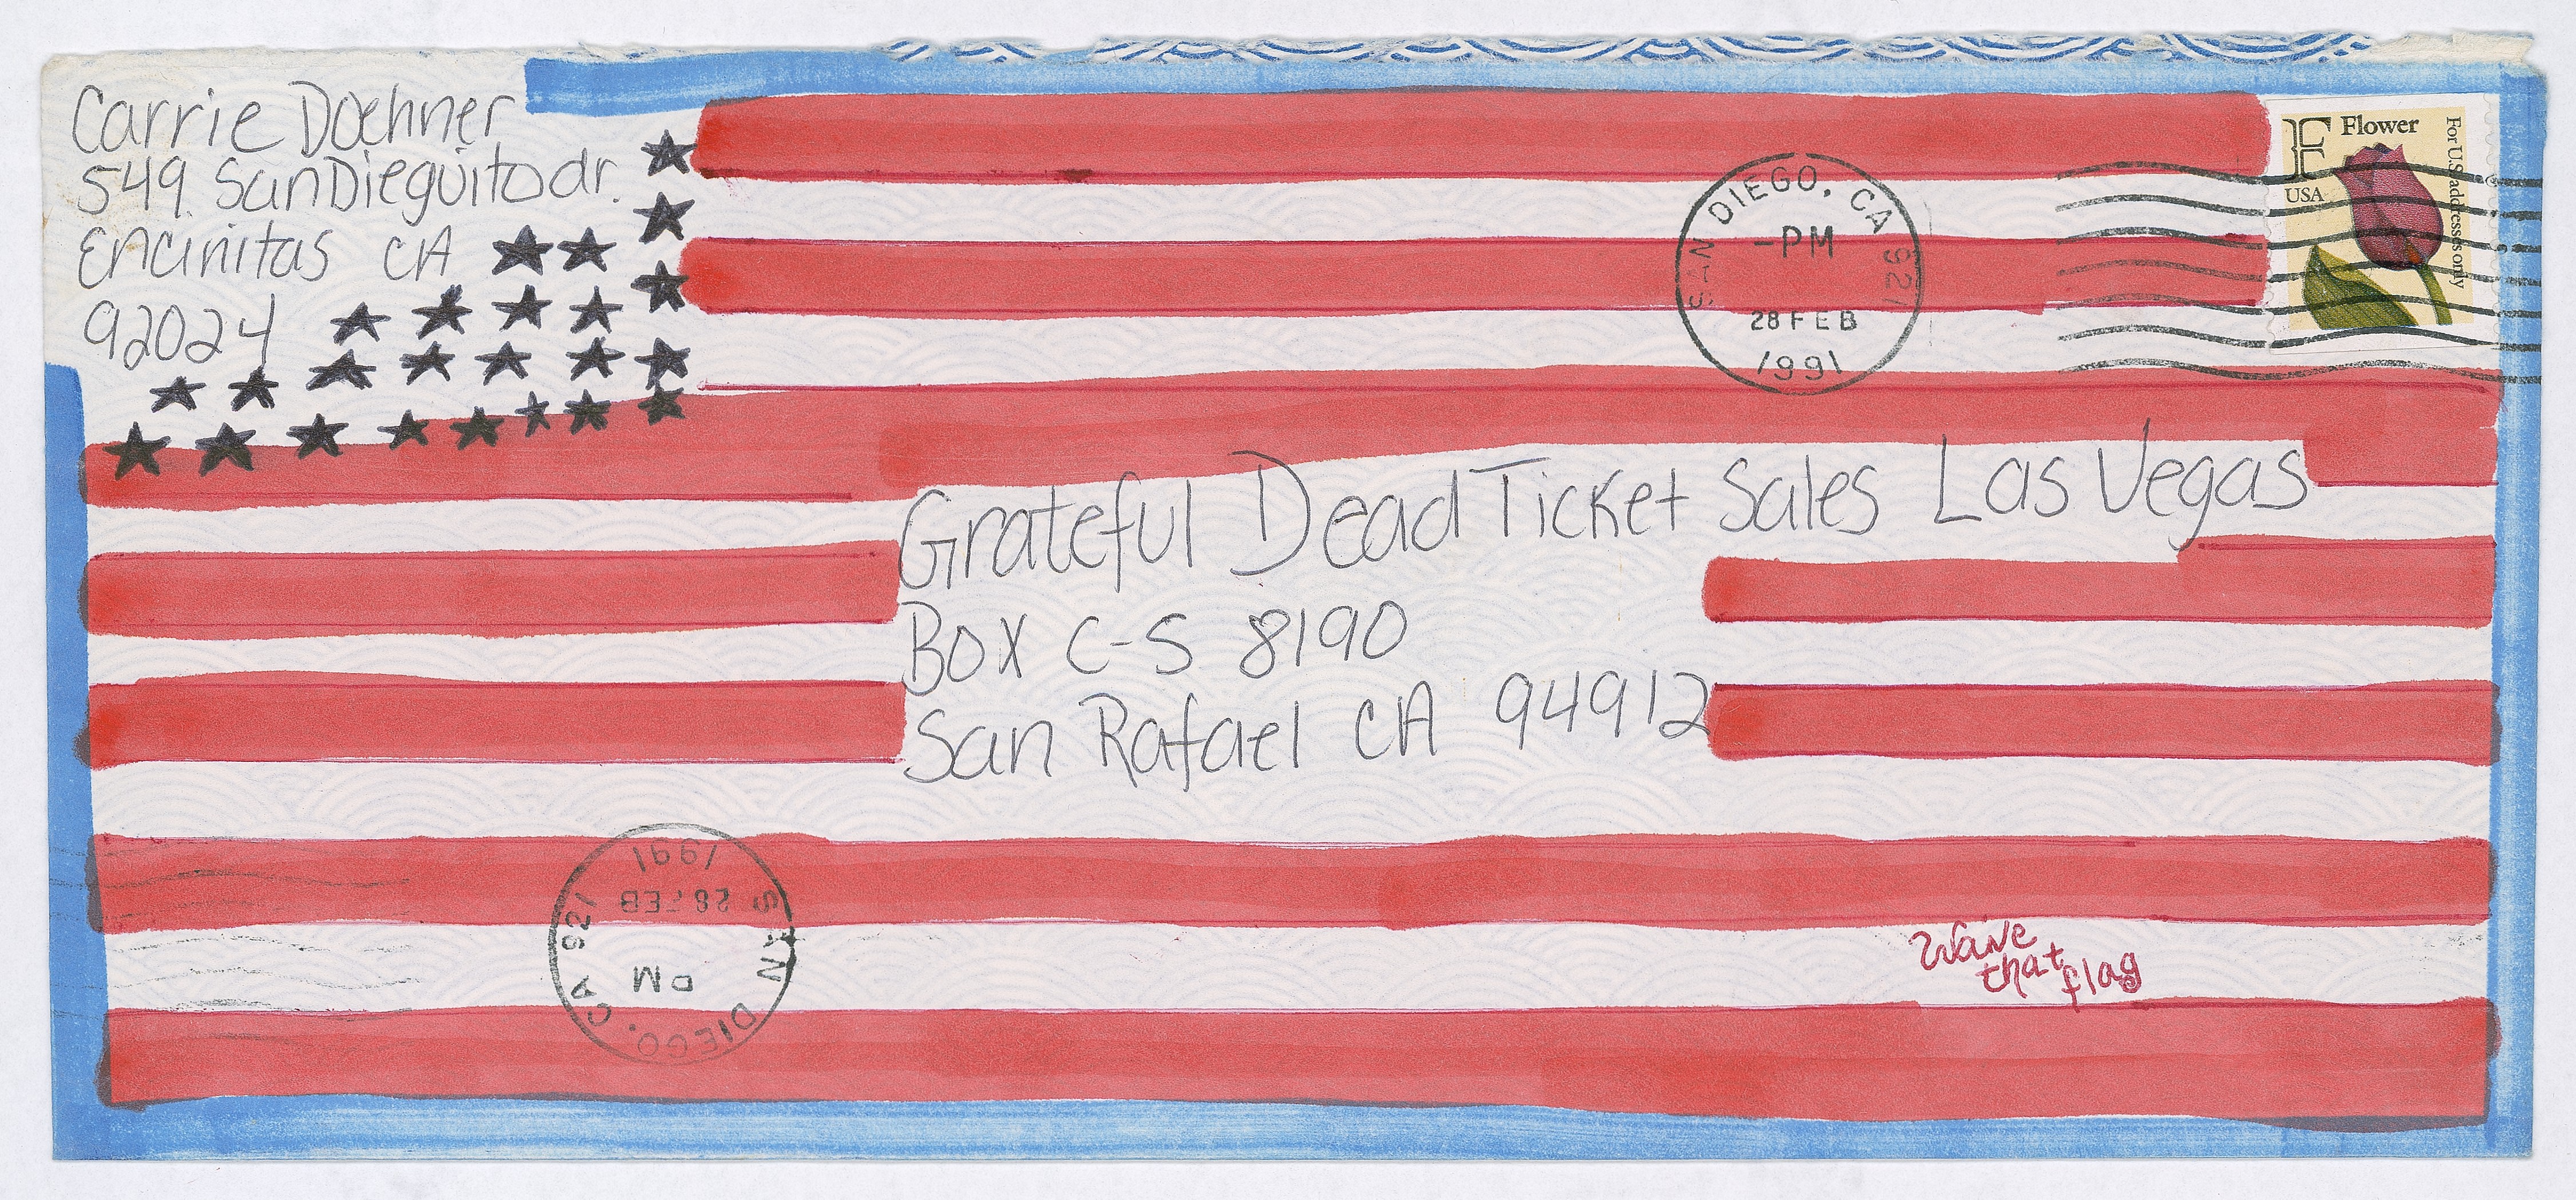 Carrie Doehner
549 San Dieguito dr.
Encinitas CA
92024
F Flower
USA
For U.S. addresses only
SAN DIEGO, CA 921
-PM
28 FEB
1991
Grateful Dead Ticket Sales Las Vegas
Box C-S 8190
San Rafael CA 94912
Wave
that flag
SAN DIEGO, CA 921
PM
28 FEB
1991